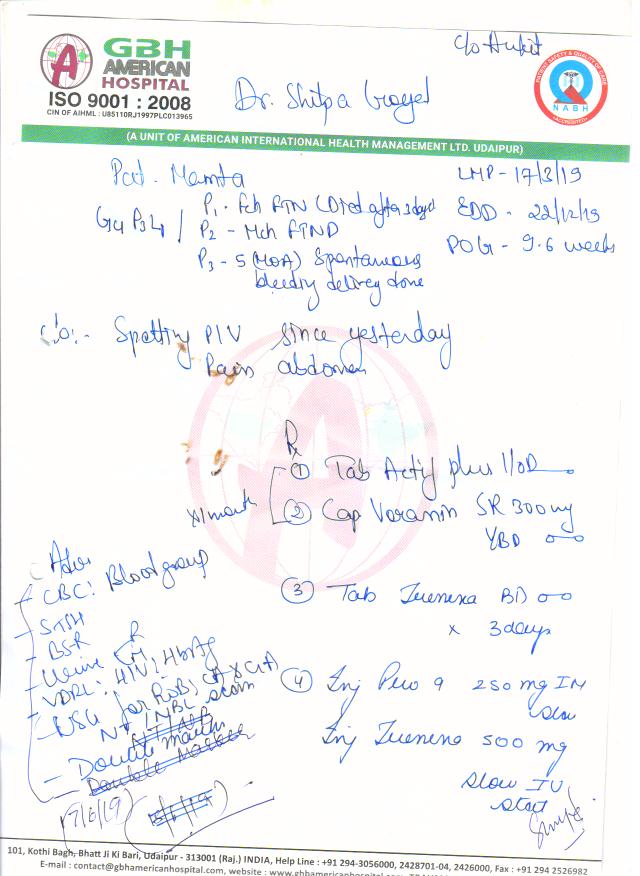 C/o Ankit
GBH
AMERICAN
HOSPITAL
ISO 9001 : 2008
CIN OF AIHML : U85110RJ1997PLC013965
Dr. Shilpa Goyal
PATIENT SAFETY & QUALITY OF CARE
NABH
ACCREDITED
(A UNIT OF AMERICAN INTERNATIONAL HEALTH MANAGEMENT LTD. UDAIPUR)
Pat. Mamta
LMP - 17/3/19
G4 P3 L1 / P1 - Fch FTND (Died after 3 days)
EDD - 22/12/19
P2 - Mch FTND
POG - 9.6 weeks
P3 - 5 (MOA) Spontaneous
bleeding delivery done
c/o:- Spotting P/V since yesterday
Pain abdomen
Rx
① Tab plus 1 OD
x 1 month
② Cap SR 300 mg
BD
Adv
- CBC: Blood group
- STSH
- BSR
- Urine R M
- VDRL: HIV; HbsAg
- USG for
NT/NBL scan
- Double marker
Double Marker
③ Tab BD
x 3 days
④ Inj 250 mg IM
Inj 500 mg
slow IV
17/6/19
101, Kothi Bagh, Bhatt Ji Ki Bari, Udaipur - 313001 (Raj.) INDIA, Help Line : +91 294-3056000, 2428701-04, 2426000, Fax : +91 294 2526982
E-mail : contact@gbhamericanhospital.com, website : www.gbhamericanhospital.com,